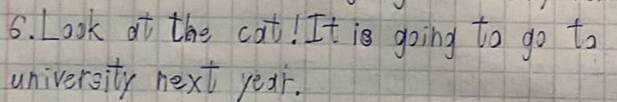 6. Look at the cat! It is going to go to
university next year.